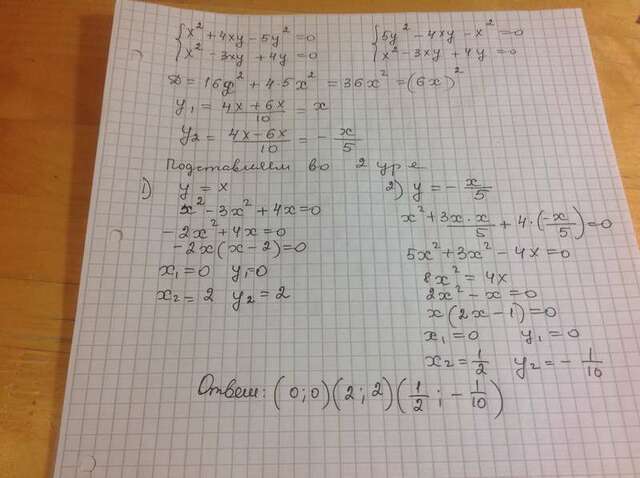 { x² + 4xy - 5y² = 0
x² - 3xy + 4y = 0
{ 5y² - 4xy - x² = 0
x² - 3xy + 4y = 0
D = 16y² + 4·5x² = 36x² = (6x)²
y₁ = (4x + 6x)/10 = x
y₂ = (4x - 6x)/10 = - x/5
Подставляем во 2 ур-е
1) y = x
x² - 3x² + 4x = 0
-2x² + 4x = 0
-2x(x - 2) = 0
x₁ = 0 y₁ = 0
x₂ = 2 y₂ = 2
2) y = - x/5
x² + 3x·x/5 + 4·(-x/5) = 0
5x² + 3x² - 4x = 0
8x² = 4x
2x² - x = 0
x(2x - 1) = 0
x₁ = 0 y₁ = 0
x₂ = 1/2 y₂ = - 1/10
Ответ: (0; 0) (2; 2) (1/2; - 1/10)